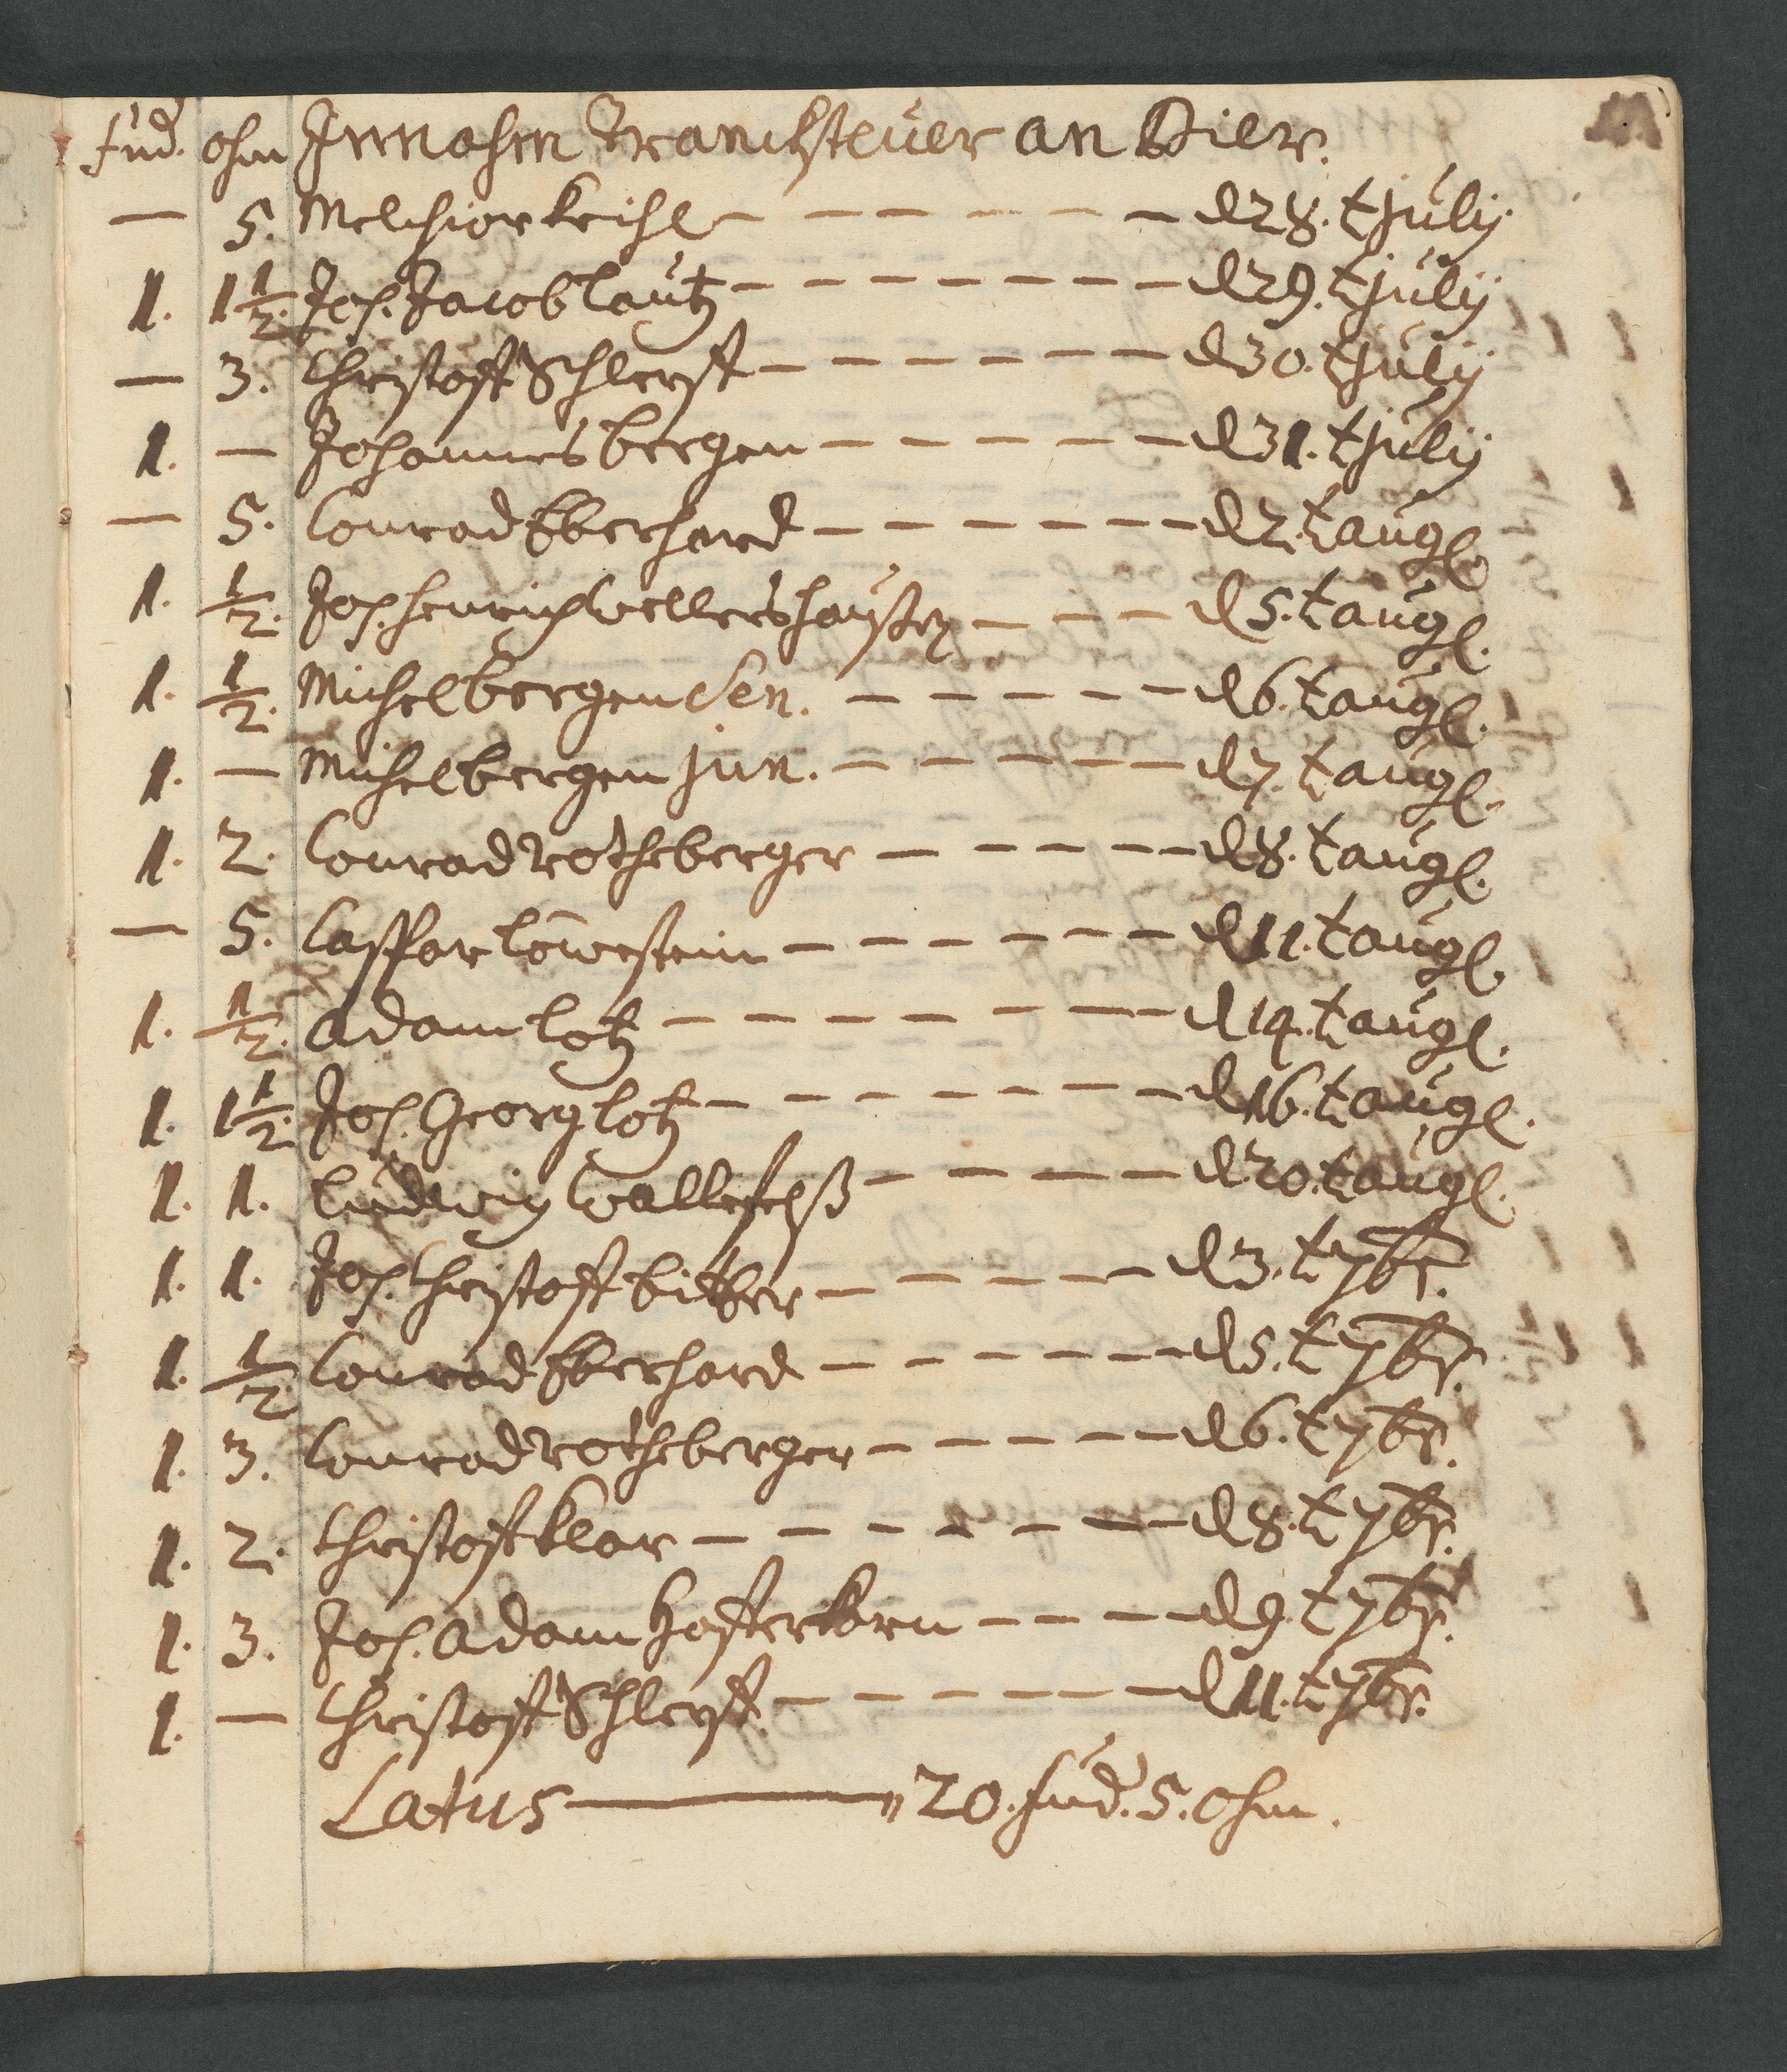 fud. ohm Innahm Tranksteuer an Bier.
— 5. Melchior Keihl — — — — — — d 28.t July
1. 1½. Joh. Jacob Lautz — — — — — — d 29.t July
— 3. Christoff Schleyst — — — — — d 30.t July
1. — Johannes bergen — — — — — d 31.t July
— 5. Conrad Eberhard — — — — — d 2.t aug.
1. ½. Joh. henrich Wellershausen — — — d 5.t aug.
1. ½. Michel bergen Sen. — — — — — d 6.t aug.
1. — Michel bergen jun. — — — — — d 7.t aug.
1. 2. Conrad rotheberger — — — — — d 8.t aug.
— 5. Casspar löwestein — — — — — — d 11.t aug.
1. ½. Adam Lotz — — — — — — — d 14.t aug.
1. 1½. Joh. Georg Lotz — — — — — — d 16.t aug.
1. 1. Ludwig Wallefelß — — — — d 20.t aug.
1. 1. Joh. Christoff bitter — — — — d 3.t 7br.
1. ½. Conrad Eberhard — — — — — d 5.t 7br.
1. 3. Conrad rotheberger — — — — d 6.t 7br.
1. 2. Christoff Klar — — — — — — d 8.t 7br.
1. 3. Joh. Adam Hasterkorn — — — d 9.t 7br.
1. — Christoff Schleyst — — — — — d 11.t 7br.
Latus — „ 20. fud. 5. ohm.